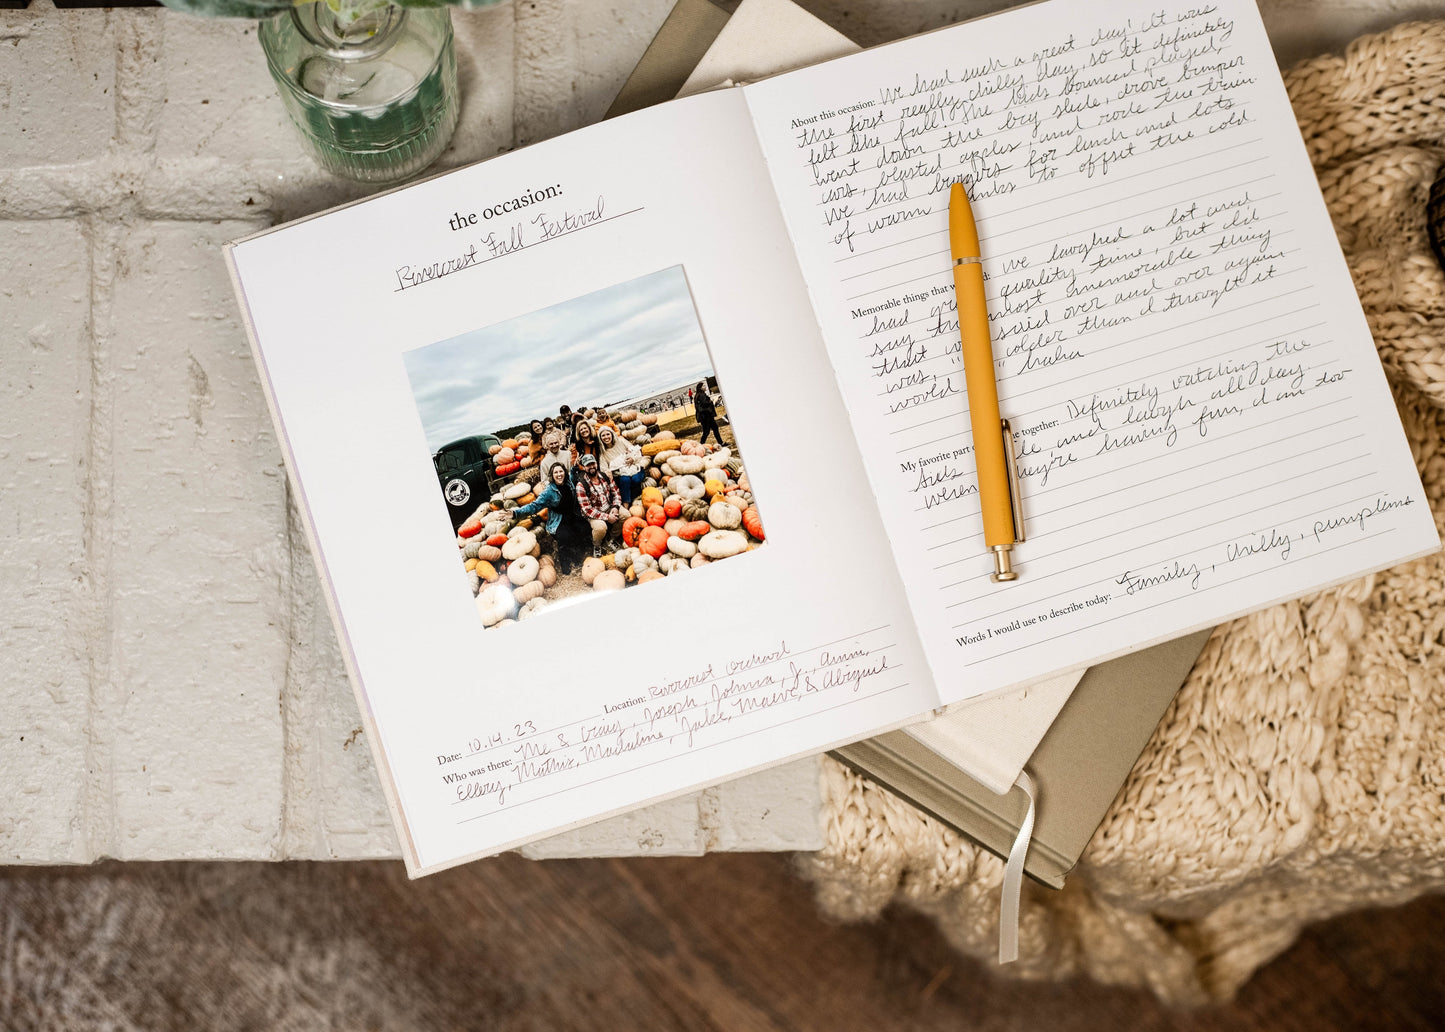 the occasion:
Rivercrest Fall Festival
Date: 10.14.23 Location: Rivercrest Orchard
Who was there: Me & Craig, Joseph, Johnna, Jr., Annie,
Ellery, Mathis, Madaline, Jake, Maeve, & Abigail
About this occasion: We had such a great day! It was
the first really chilly day, so it definitely
felt like fall! The kids bounced, played,
went down the big slide, drove bumper
cars, blasted apples, and rode the train.
We had burgers for lunch and lots
of warm drinks to offset the cold
Memorable things that we laughed a lot and
had quality time, but I'd
say the most memorable thing
that we said over and over again
was, "colder than I thought it
would haha
My favorite part together: Definitely watching the
kids and laugh all day.
When they're having fun, I am too
Words I would use to describe today: Family, chilly, pumpkins